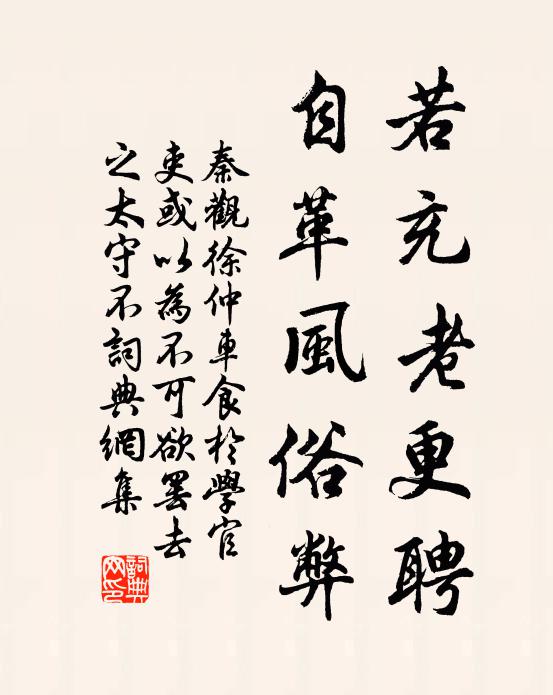 若充老更聘
自革風俗弊
秦觀徐仲車食於學官
吏或以為不可欲罷去
之太守不詞典網集
詞典网印